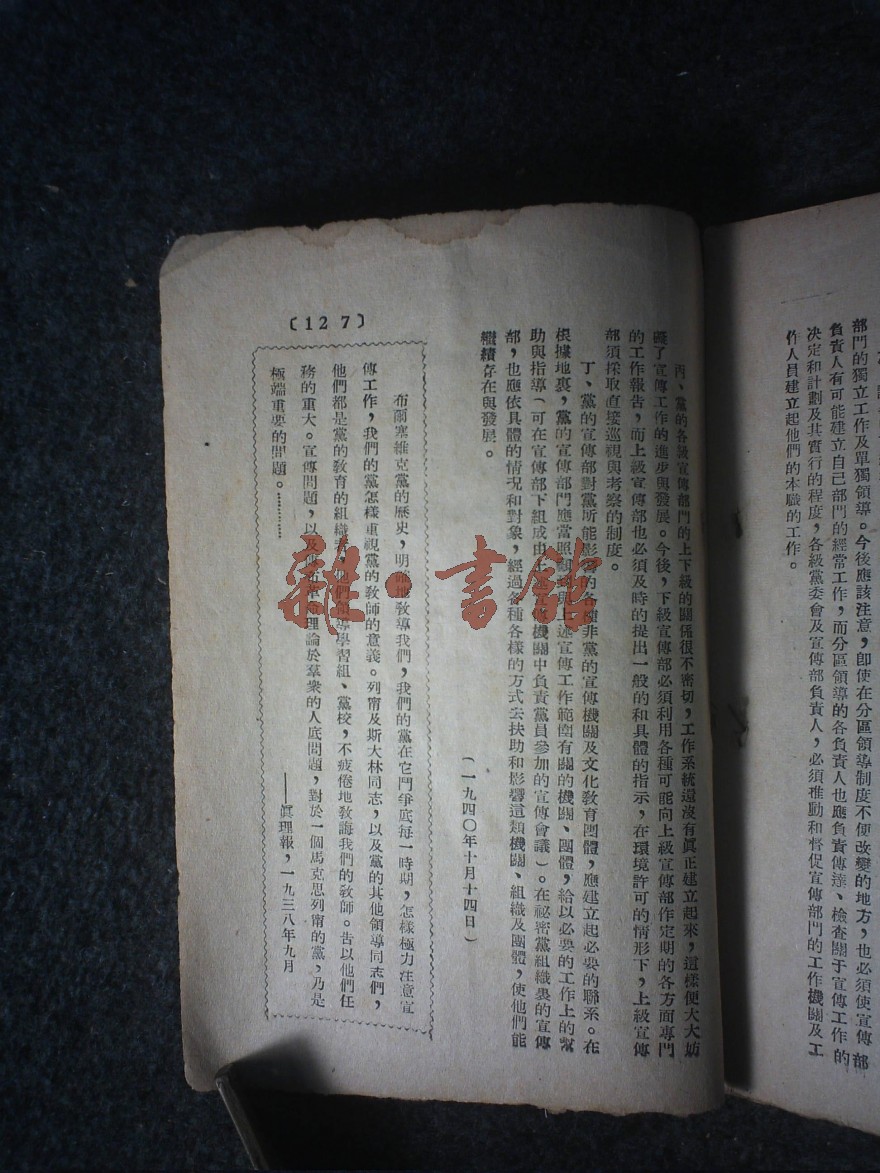 部門的獨立工作及單獨領導。今後應該注意,卽使在分區領導制度不便改變的地方,也必須使宣傳部
負責人有可能建立自己部門的經常工作,而分區領導的各負責人也應負責傳達、檢查關于宣傳工作的
决定和計劃及其實行的程度,各級黨委會及宣傳部負責人,必須推動和督促宣傳部門的工作機關及工
作人員建立起他們的本職的工作。
丙、黨的各級宣傳部門的上下級的關係很不密切,工作系統還沒有眞正建立起來,這樣便大大妨
礙了宣傳工作的進步與發展。今後,下級宣傳部必須利用各種可能向上級宣傳部作定期的各方面專門
的工作報告,而上級宣傳部也必須及時的提出一般的和具體的指示,在環境許可的情形下,上級宣傳
部須採取直接巡視與考察的制度。
丁、黨的宣傳部對黨所能影響的各種非黨的宣傳機關及文化敎育團體,應建立起必要的聯系。在
根據地裏,黨的宣傳部門應當照顧到與上述宣傳工作範圍有關的機關、團體,給以必要的工作上的幫
助與指導(可在宣傳部下組成由上述宣傳機關中負責黨員參加的宣傳會議)。在祕密黨組織裏的宣傳
部,也應依具體的情况和對象,經過各種各樣的方式去扶助和影響這類機關、組織及團體,使他們能
繼續存在與發展。
(一九四〇年十月十四日)
布爾塞維克黨的歷史,明確地敎導我們,我們的黨在它鬥爭底每一時期,怎樣極力注意宣
傳工作,我們的黨怎樣重視黨的敎師的意義。列甯及斯大林同志,以及黨的其他領導同志們,
他們都是黨的敎育的組織者,他們領導學習組、黨校,不疲倦地敎誨我們的敎師。告以他們任
務的重大。宣傳問題,以及傳布革命理論於羣衆的人底問題,對於一個馬克思列甯的黨,乃是
極端重要的問題。…………
——眞理報,一九三八年九月
〔127〕
雜·書館